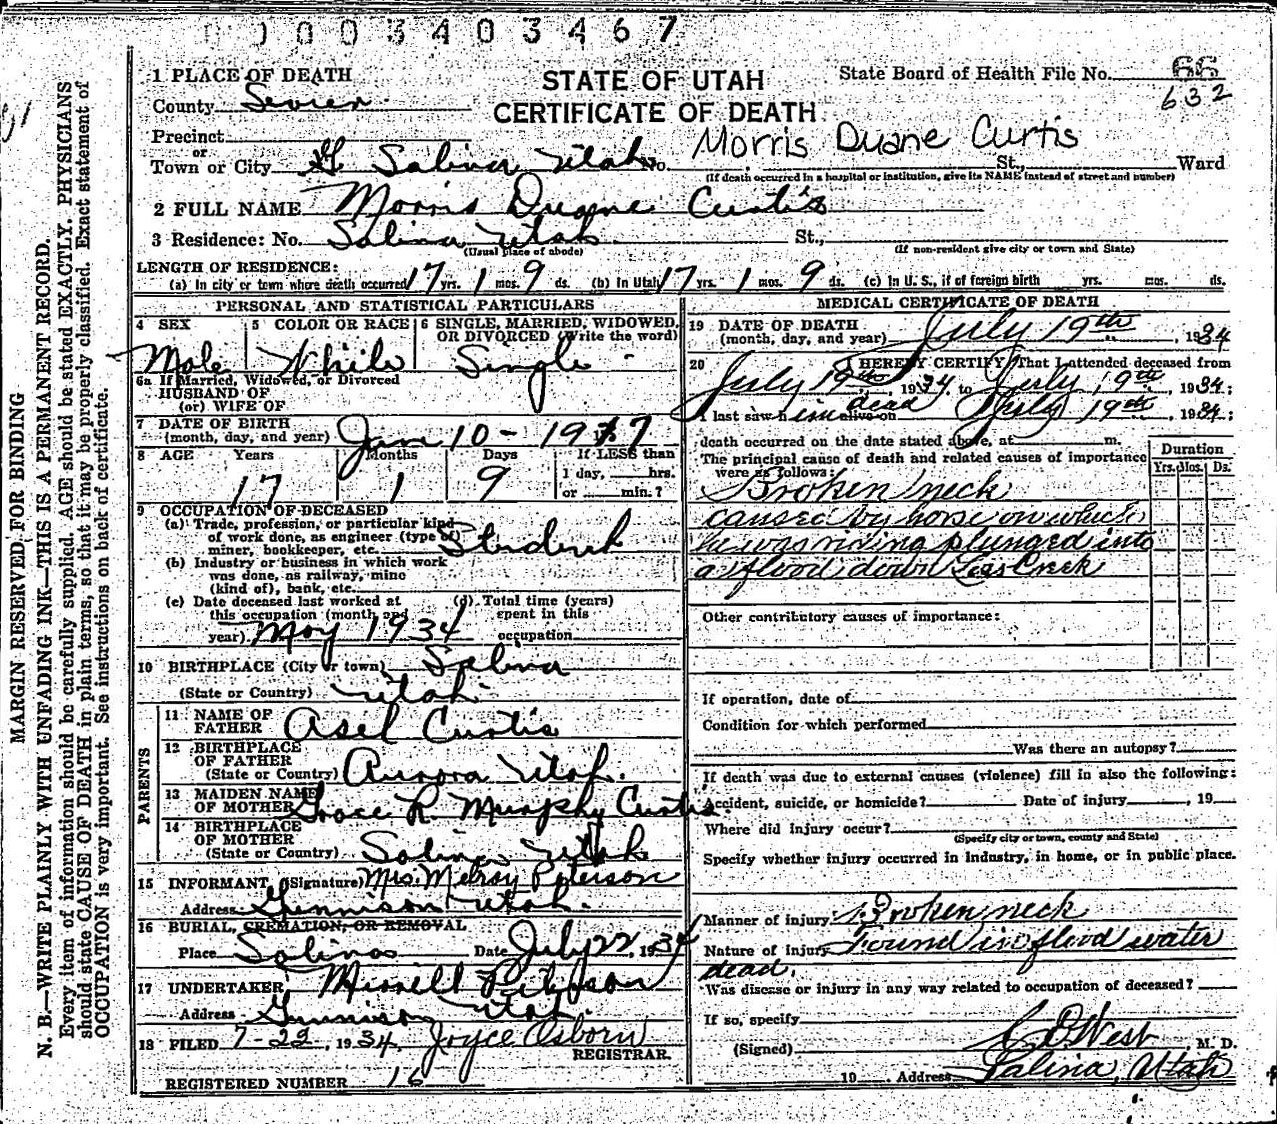 0 0 0 0 3 4 0 3 4 6 7
MARGIN RESERVED FOR BINDING
N. B.—WRITE PLAINLY WITH UNFADING INK—THIS IS A PERMANENT RECORD.
Every item of information should be carefully supplied. AGE should be stated EXACTLY. PHYSICIANS
should state CAUSE OF DEATH in plain terms, so that it may be properly classified. Exact statement of
OCCUPATION is very important. See instructions on back of certificate.
STATE OF UTAH
CERTIFICATE OF DEATH
State Board of Health File No. 66
632
1 PLACE OF DEATH
County Sevier
Precinct
or
Town or City Salina Utah No. St., Ward
Morris Duane Curtis
(If death occurred in a hospital or institution, give its NAME instead of street and number)
2 FULL NAME Morris Duane Curtis
3 Residence: No. Salina Utah St.,
(Usual place of abode) (If non-resident give city or town and State)
LENGTH OF RESIDENCE:
(a) In city or town where death occurred 17 yrs. 1 mos. 9 ds. (b) In Utah 17 yrs. 1 mos. 9 ds. (c) In U. S., if of foreign birth yrs. mos. ds.
PERSONAL AND STATISTICAL PARTICULARS
4 SEX Male
5 COLOR OR RACE White
6 SINGLE, MARRIED, WIDOWED, OR DIVORCED (Write the word) Single
6a If Married, Widowed, or Divorced
HUSBAND OF
(or) WIFE OF
7 DATE OF BIRTH
(month, day, and year) Jan 10 - 1917
8 AGE Years Months Days If LESS than
17 1 9 1 day, hrs.
or min.?
9 OCCUPATION OF DECEASED
(a) Trade, profession, or particular kind
of work done, as engineer (type of)
miner, bookkeeper, etc. Student
(b) Industry or business in which work
was done, as railway, mine
(kind of), bank, etc.
(c) Date deceased last worked at
this occupation (month and
year) May 1934
(d) Total time (years)
spent in this
occupation
10 BIRTHPLACE (City or town) Salina
(State or Country) Utah
PARENTS
11 NAME OF
FATHER Asel Curtis
12 BIRTHPLACE
OF FATHER
(State or Country) Aurora Utah.
13 MAIDEN NAME
OF MOTHER Grace R. Murphy Curtis
14 BIRTHPLACE
OF MOTHER
(State or Country) Salina Utah
15 INFORMANT (Signature) Mrs. Melroy Peterson
Address Gunnison Utah.
16 BURIAL, CREMATION, OR REMOVAL
Place Salina Date July 22, 1934
17 UNDERTAKER Merrell
Address Gunnison Utah.
18 FILED 7-22, 1934. Joyce Osborn
REGISTRAR.
REGISTERED NUMBER 16
MEDICAL CERTIFICATE OF DEATH
19 DATE OF DEATH
(month, day, and year) July 19th, 1934
20 I HEREBY CERTIFY, That I attended deceased from
July 19th 1934, to July 19th, 1934;
I last saw him alive on dead July 19th, 1934;
death occurred on the date stated above, at m.
The principal cause of death and related causes of importance
were as follows:
Duration
Yrs. Mos. Ds.
Broken neck
caused by horse on which
he was riding plunged into
a flood down Creek
Other contributory causes of importance:
If operation, date of
Condition for which performed
Was there an autopsy?
If death was due to external causes (violence) fill in also the following:
Accident, suicide, or homicide? Date of injury , 19
Where did injury occur?
(Specify city or town, county and State)
Specify whether injury occurred in industry, in home, or in public place.
Manner of injury Broken neck
Nature of injury Found in flood water
dead.
Was disease or injury in any way related to occupation of deceased?
If so, specify
(Signed) C D West, M. D.
19 Address Salina, Utah